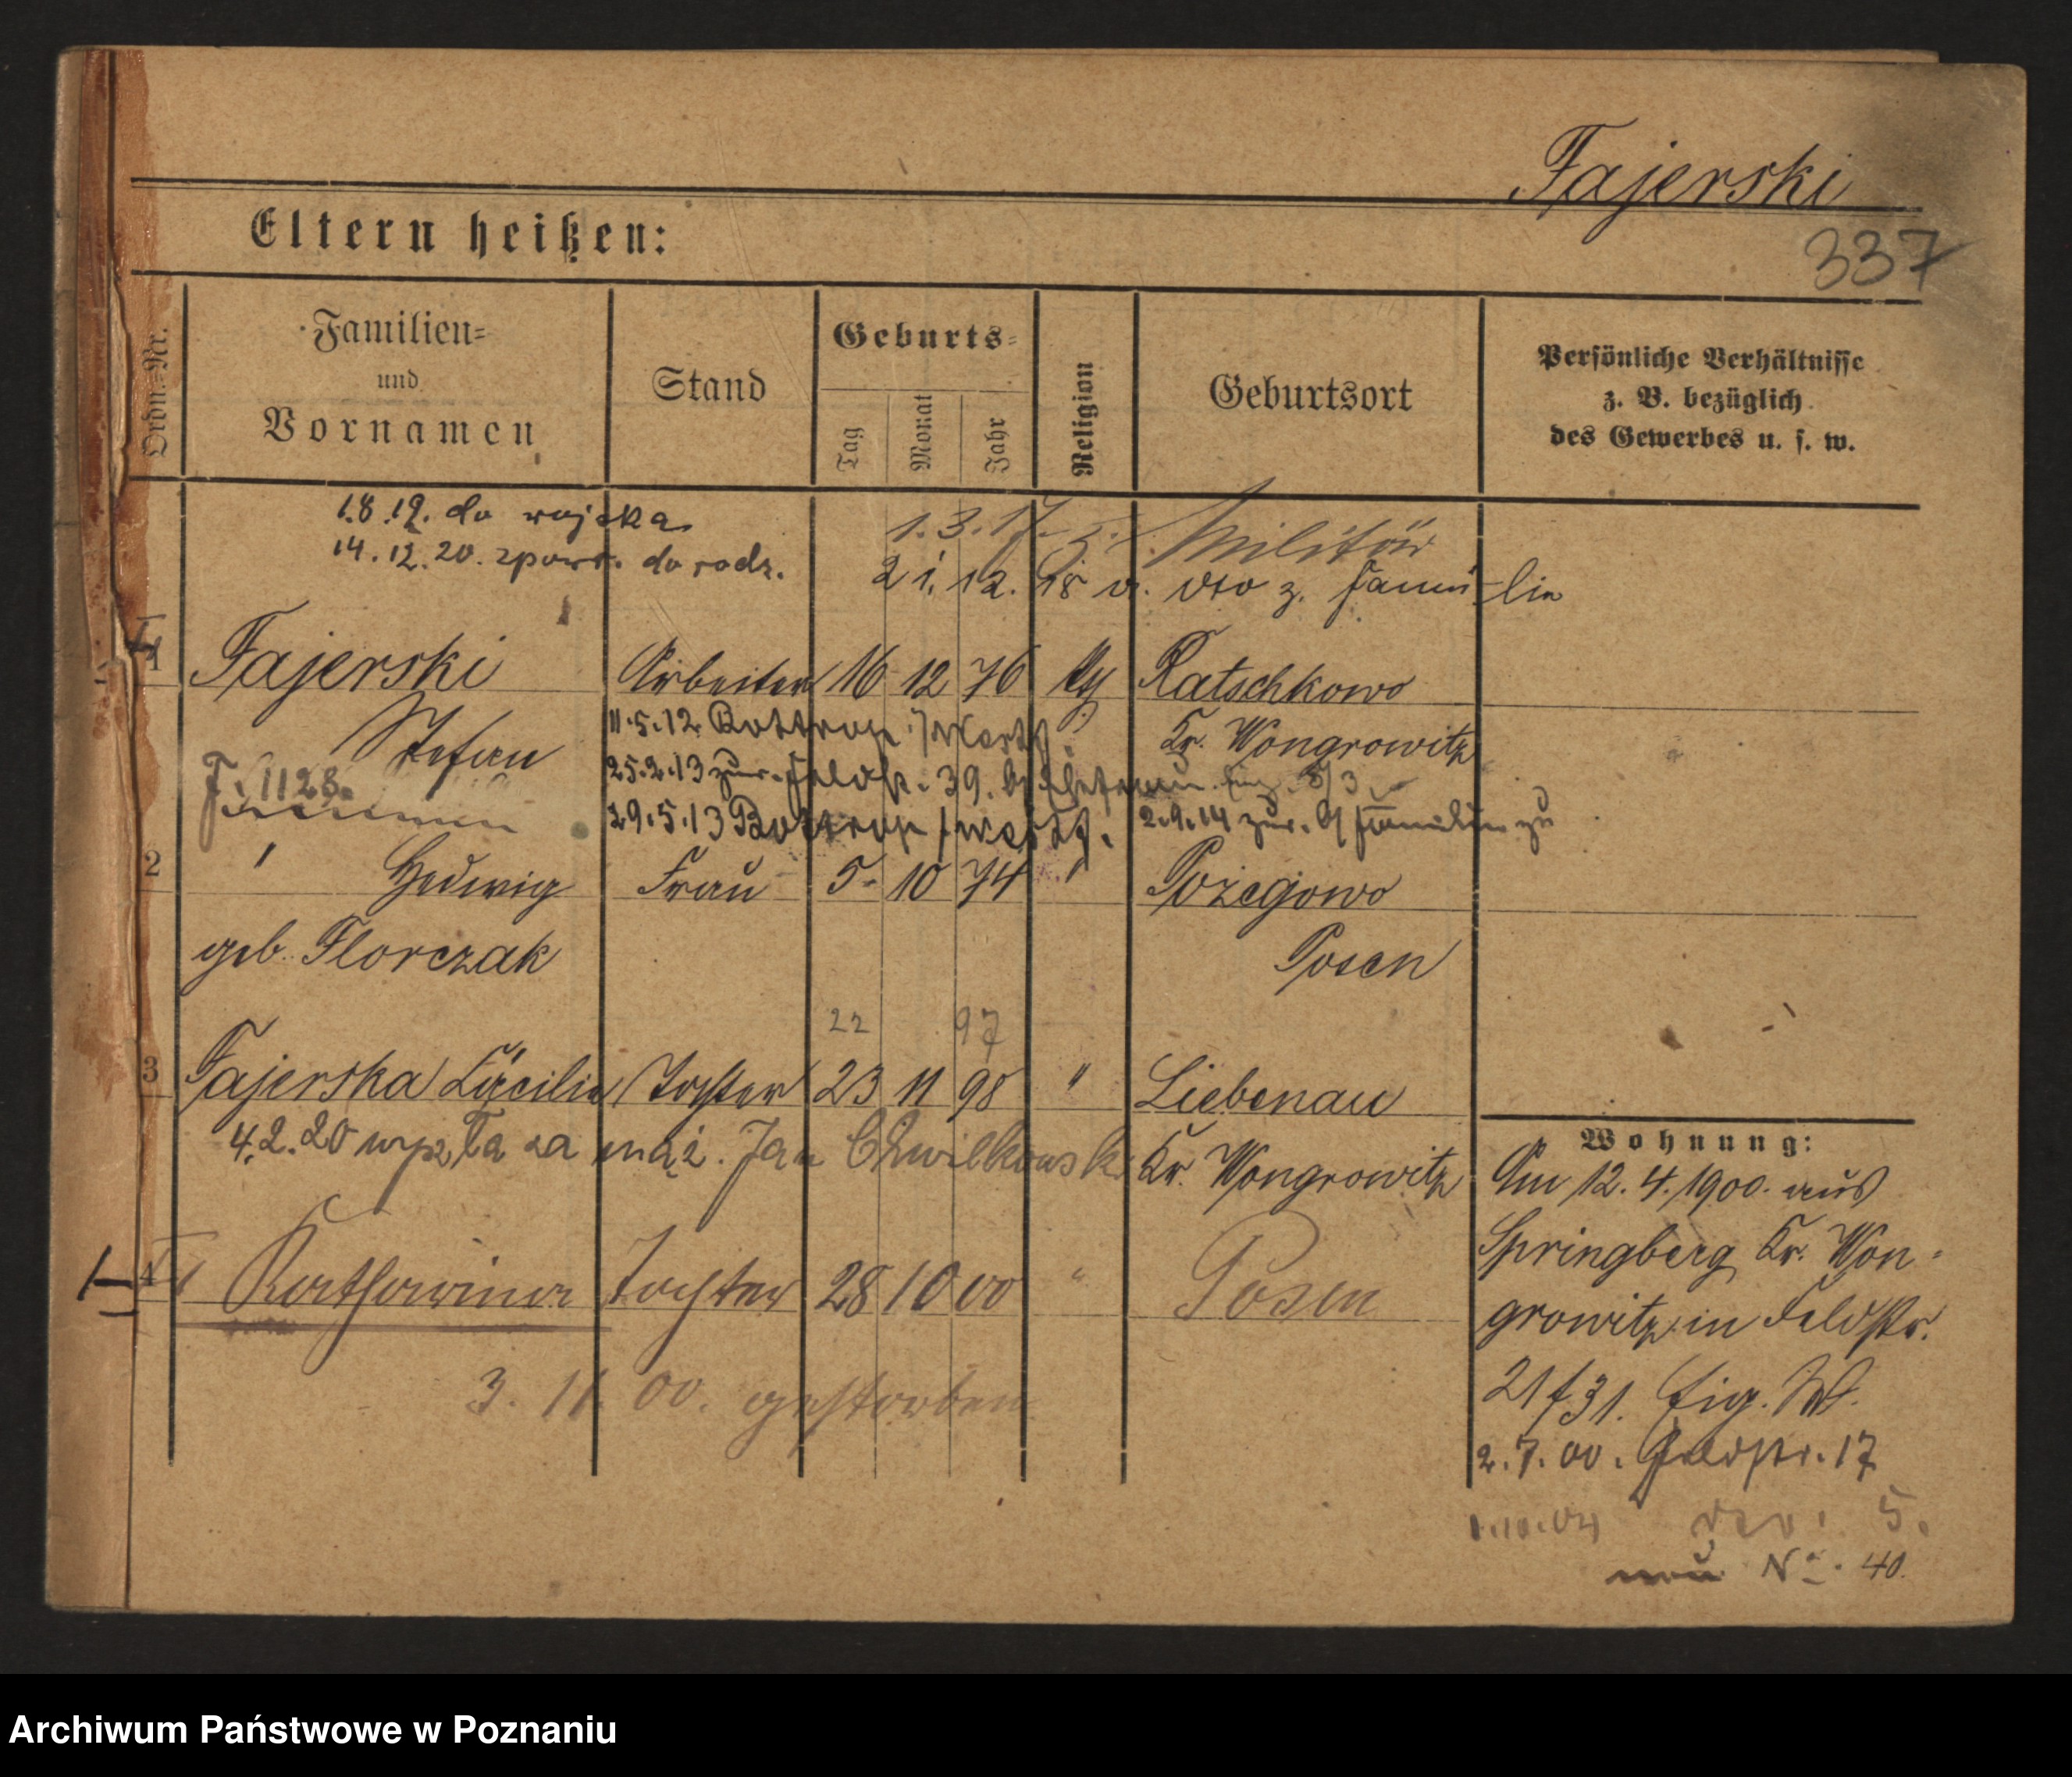 Fajerski
337
Eltern heißen:
Ordn.-Nr.
Familien-
und
Vornamen
Stand
Geburts-
Tag
Monat
Jahr
Religion
Geburtsort
Persönliche Verhältnisse
z. B. bezüglich
des Gewerbes u. s. w.
1.8.19. do wojska
14.12.20. zpowr. do rodz.
1.3.17. z. Militär
21.12.18 v. dto z. Familie
1 Fajerski Arbeiter 16 12 76 Ratschkowo
Stefan 11.5.12 Bottrop /Westf. Kr. Wongrowitz
25.2.13 zur. Feldstr. 39. b/ Ehefrau
29.5.13 Bottrop /Westf. 2.9.14 zur. Familie zu
2 " Hedwig Frau 5. 10 74 " Pozegowo
geb. Florczak Posen
22 97
3 Fajerska Cäcilie Tochter 23 11 98 " Liebenau
4.2.20 wyszła za mąż. Jan Chwilkowski Kr. Wongrowitz
4 Katharina Tochter 28 10 00 " Posen
3. 11. 00. gestorben
Wohnung:
Am 12.4.1900. aus
Springberg Kr. Won-
growitz in Feldstr.
21/31. Eig. W.
2.7.00. Feldstr. 17
1.10.04 dto. 5.
neu No. 40.
Archiwum Państwowe w Poznaniu